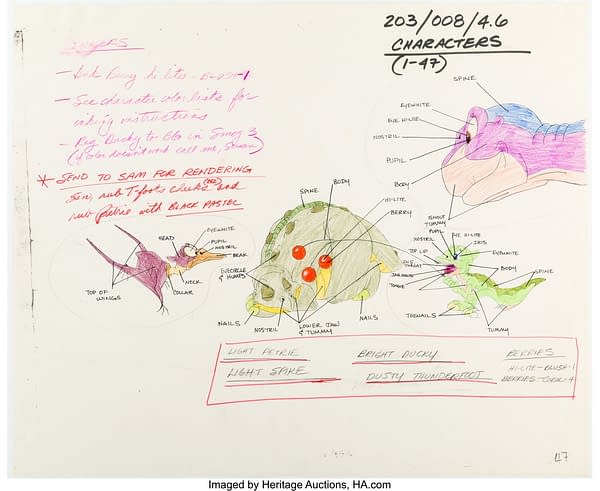 203/008/4.6
CHARACTERS
(1-47)
INKERS
- Ink Berry hi-lite - BLUSH-1
- See character color lists for
inking instructions
- Reg Ducky to BG in Smog 3
(if color doesn't work call me, Susan)
* SEND TO SAM FOR RENDERING
Sam, rub T-foots cheeks and
rub petrie with BLACK PASTEL
SPINE
EYEWHITE
EYE HI-LITE
NOSTRIL
PUPIL
BODY
SNOUT
TUMMY
HEAD
EYEWHITE
PUPIL
NOSTRIL
BEAK
NECK
COLLAR
TOP OF
WINGS
SPINE
BODY
HI-LITE
BERRY
EYECIRCLE
& HUMPS
NAILS
NOSTRIL
LOWER JAW
& TUMMY
NAILS
PUPIL
EYE HI-LITE
NOSTRIL
IRIS
TOP LIP
EYEWHITE
BODY
SPINE
TONGUE
TOENAILS
TUMMY
LIGHT PETRIE BRIGHT DUCKY BERRIES
LIGHT SPIKE DUSTY THUNDERFOOT HI-LITE-BLUSH-1
BERRIES-CORAL-4
47
Imaged by Heritage Auctions, HA.com